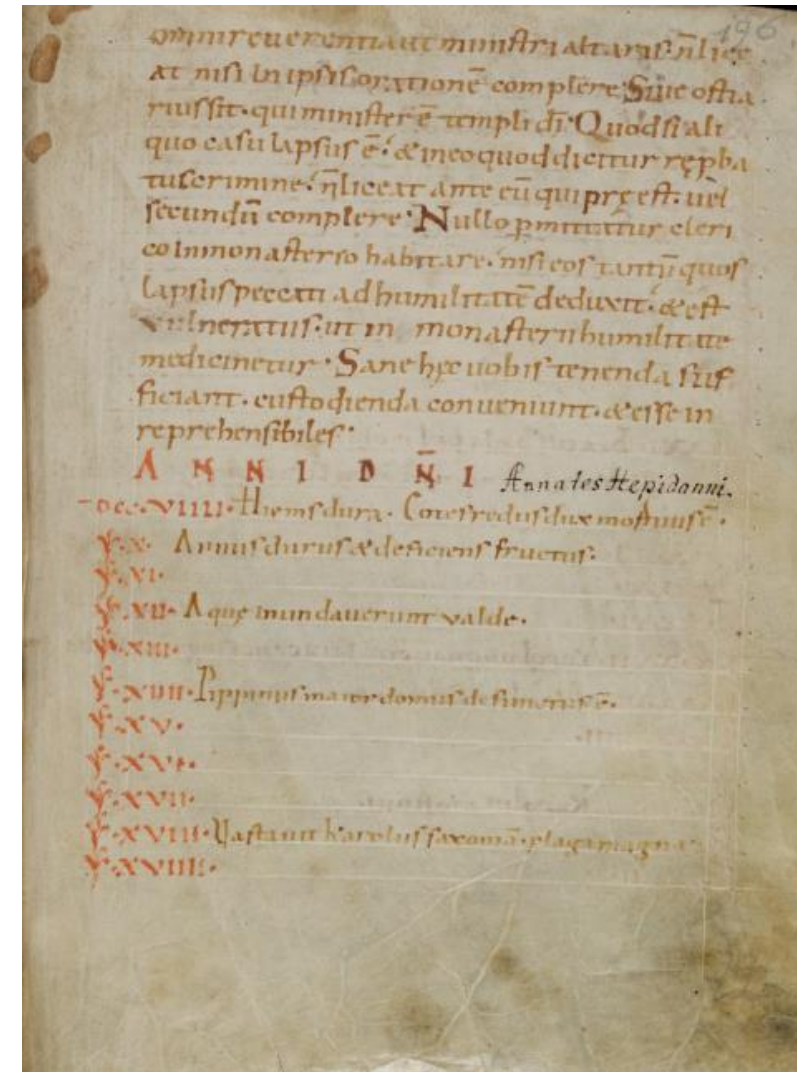 196
omni reuerentia ut ministri altaris n̄ lice
at nisi in ipsis oratione᷒ complere. Siue ostia
rius sit. qui minister ē templi dī. Quod si ali
quo casu lapsus ē. & in eo quod dicitur rep̱ba
tus crimine. n̄ liceat ante eū qui pręest. uel
secundū complere. Nullo p̱mittatur cleri
co in monasterio habitare. nisi eos tantū quos
lapsus peccati ad humilitatē deduxit. & est
vulneratus. ut in monasterii humilitate
medicinetur. Sane hęc uobis tenenda suf
ficiant. custodienda conueniunt. & esse in
reprehensibiles.
A N N I D N̄ I Annales Hepidanni.
DCC.VIIII. Hiems dura. Cotefredus dux mortuus ē.
X. Annus durus & deficiens fructus.
XI.
XII. Aquę inundauerunt valde.
XIII.
XIIII. Pippinus maior domus defunctus ē.
XV.
XVI.
XVII.
XVIII. Vastauit karolus saxoniā. plaga magna
XVIIII.